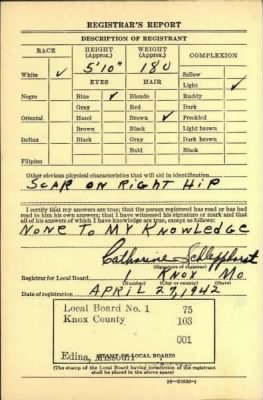 REGISTRAR'S REPORT
DESCRIPTION OF REGISTRANT
RACE HEIGHT (Approx.) WEIGHT (Approx.) COMPLEXION
5'10" 180
White ✓ EYES HAIR Sallow
Light ✓
Negro Blue ✓ Blonde Ruddy
Gray Red Dark
Oriental Hazel Brown ✓ Freckled
Brown Black Light brown
Indian Black Gray Dark brown
Bald Black
Filipino
Other obvious physical characteristics that will aid in identification
SCAR ON RIGHT HIP
I certify that my answers are true; that the person registered has read or has had
read to him his own answers; that I have witnessed his signature or mark and that
all of his answers of which I have knowledge are true, except as follows:
NONE TO MY KNOWLEDGE
(Signature of registrar)
Registrar for Local Board 1 KNOX MO
(Number) (City or county) (State)
Date of registration APRIL 27, 1942
Local Board No. 1 75
Knox County 103
001
Edina, Missouri
(STAMP OF LOCAL BOARD)
(The stamp of the Local Board having jurisdiction of the registrant
shall be placed in the above space)